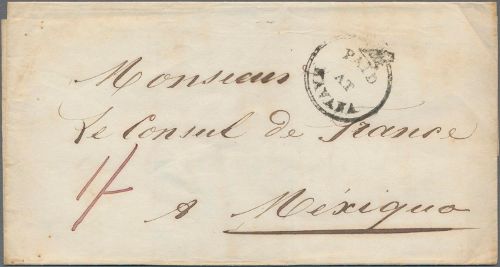 PAID
AT
HAVANA
Monsieur
Le Consul de France
1/-
à Méxique